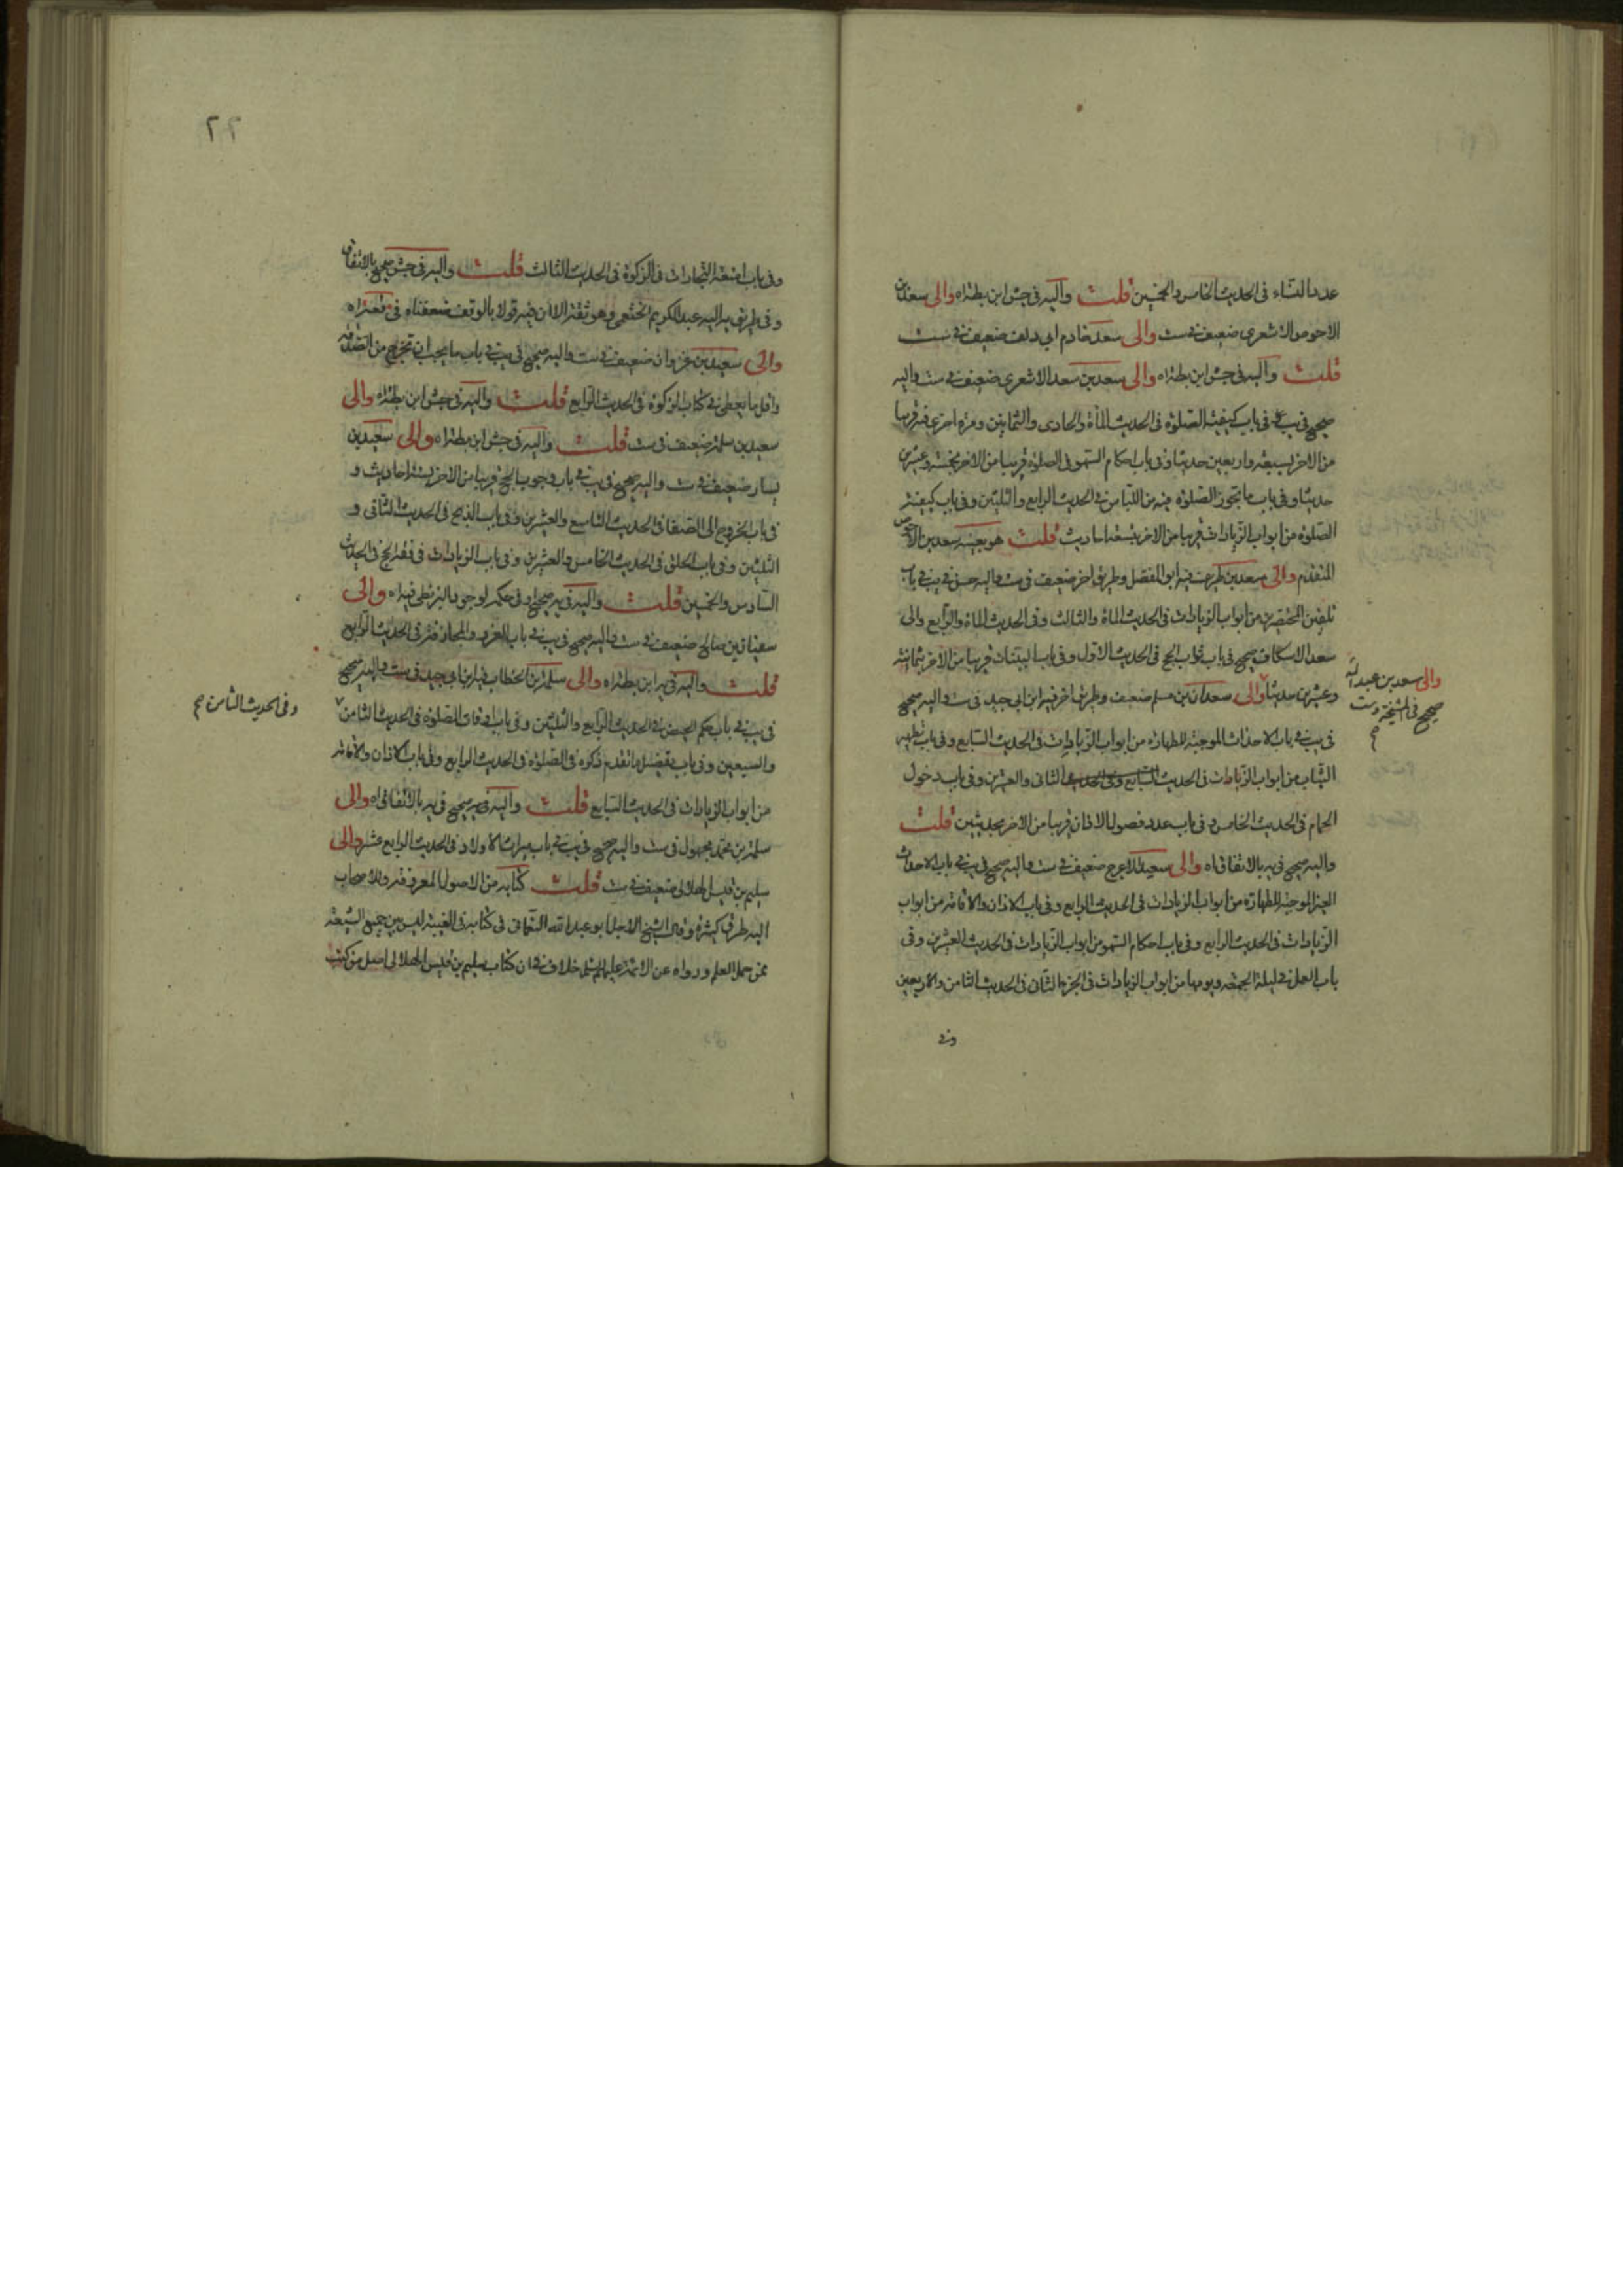 عدد النساء فى الحديث الخامس والخمسين قلت واليه فى جش ابن بطة اه والى سعد بن
الاحوص الاشعرى ضعيف فى ست والى سعد خادم ابى دلف ضعيف فى ست
قلت واليه فى جش ابن بطة اه والى سعد بن سعد الاشعرى ضعيف فى ست واليه
صحيح فى يب فى باب كيفية الصلوة فى الحديث المأة والحادى والثمانين ومرة اخرى فيه قريبا
من الاخر بسبعة واربعين حديثا وفى باب احكام السهو فى الصلوة قريبا من الاخر بخمسة وعشرين
حديثا وفى باب ما تجوز الصلوة فيه من اللباس فى الحديث الرابع والثلثين وفى باب كيفية
الصلوة من ابواب الزيادات قريبا من الاخر بتسعة احاديث قلت هو بعينه سعد بن الاحوص
المتقدم والى سعد بن طريف فيه ابو المفضل وطريق اخر ضعيف فى ست واليه حسن فى يب فى باب
تلقين المحتضرين من ابواب الزيادات فى الحديث المأة والثالث وفى الحديث المأة والرابع والى
سعد الاسكاف صحيح فى باب ثواب الحج فى الحديث الاول وفى باب البينات قريبا من الاخر بثمانية
وعشرين حديثا والى سعدان بن مسلم ضعيف وطريق اخر فيه ابن ابى جيد فى ست واليه صحيح
والى سعد بن عبد الله
صحيح فى المشيخة وست
فى يب فى باب الاحداث الموجبة للطهارة من ابواب الزيادات فى الحديث السابع وفى باب تطهير
الثياب من ابواب الزيادات فى الحديث السابع وفى الحديث الثانى والعشرين وفى باب دخول
الحمام فى الحديث الخامس وفى باب عدد فصول الاذان قريبا من الاخر بحديثين قلت
واليه صحيح فى يه بالاتفاق اه والى سعيد الاعرج ضعيف فى ست واليه صحيح فى يب فى باب الاحداث
الغير الموجبة للطهارة من ابواب الزيادات فى الحديث الرابع وفى باب الاذان والاقامة من ابواب
الزيادات فى الحديث الرابع وفى باب احكام السهو من ابواب الزيادات فى الحديث العشرين وفى
باب العمل فى ليلة الجمعة ويومها من ابواب الزيادات فى الجزء الثانى فى الحديث الثامن والاربعين
وفى
٢٢
وفى باب امتعة التجارات فى الزكوة فى الحديث الثالث قلت واليه فى جش صحيح بالاتفاق
وفى طريق يه اليه عبد الكريم الخثعمى وهو ثقة الا ان فيه قولا بالوقف
والى سعيد بن غزوان ضعيف فى ست واليه صحيح فى يب فى باب ما يجب ان تخرج من الصدقة
واقل ما يعطى فى كتاب الزكوة فى الحديث الرابع قلت واليه فى جش ابن بطة اه والى
سعيد بن سلمة ضعيف فى ست قلت واليه فى جش ابن بطة اه والى سعيد بن
يسار ضعيف فى ست واليه صحيح فى يب فى باب وجوب الحج قريبا من الاخر بستة احاديث و
فى باب الخروج الى الصفا فى الحديث التاسع والعشرين وفى باب الذبح فى الحديث الثانى و
الثلثين وفى باب الحلق فى الحديث الخامس والعشرين وفى باب الزيادات فى فقه الحج فى الحديث
السادس والخمسين قلت واليه فى يه صحيح او فى حكمه لوجود البزنطى فيه اه والى
سفيان بن صالح ضعيف فى ست واليه صحيح فى يب فى باب الغرر والمجازفة فى الحديث الرابع
قلت واليه فى يه ابن بطة اه والى سلمة بن الخطاب فيه ابن ابى جيد فى ست واليه صحيح
فى يب فى باب حكم الحيض فى الحديث الرابع والثلثين وفى باب اوقات الصلوة فى الحديث الثامن
وفى الحديث الثامن صح
والسبعين وفى باب تفصيل ما تقدم ذكره فى الصلوة فى الحديث الرابع وفى باب الاذان والاقامة
من ابواب الزيادات فى الحديث السابع قلت واليه فى يه صحيح فى يه بالاتفاق اه والى
سلمة بن محمد مجهول فى ست واليه صحيح فى يب فى باب ميراث الاولاد فى الحديث الرابع عشر والى
سليم بن قيس الهلالى ضعيف فى ست قلت كتابه من الاصول المعروفة وللاصحاب
اليه طرق كثيرة وقال الشيخ الاجل ابو عبد الله النعمانى فى كتابه فى الغيبة ليس بين جميع الشيعة
ممن حمل العلم ورواه عن الائمة عليهم السلم خلاف فى ان كتاب سليم بن قيس الهلالى اصل من كتب